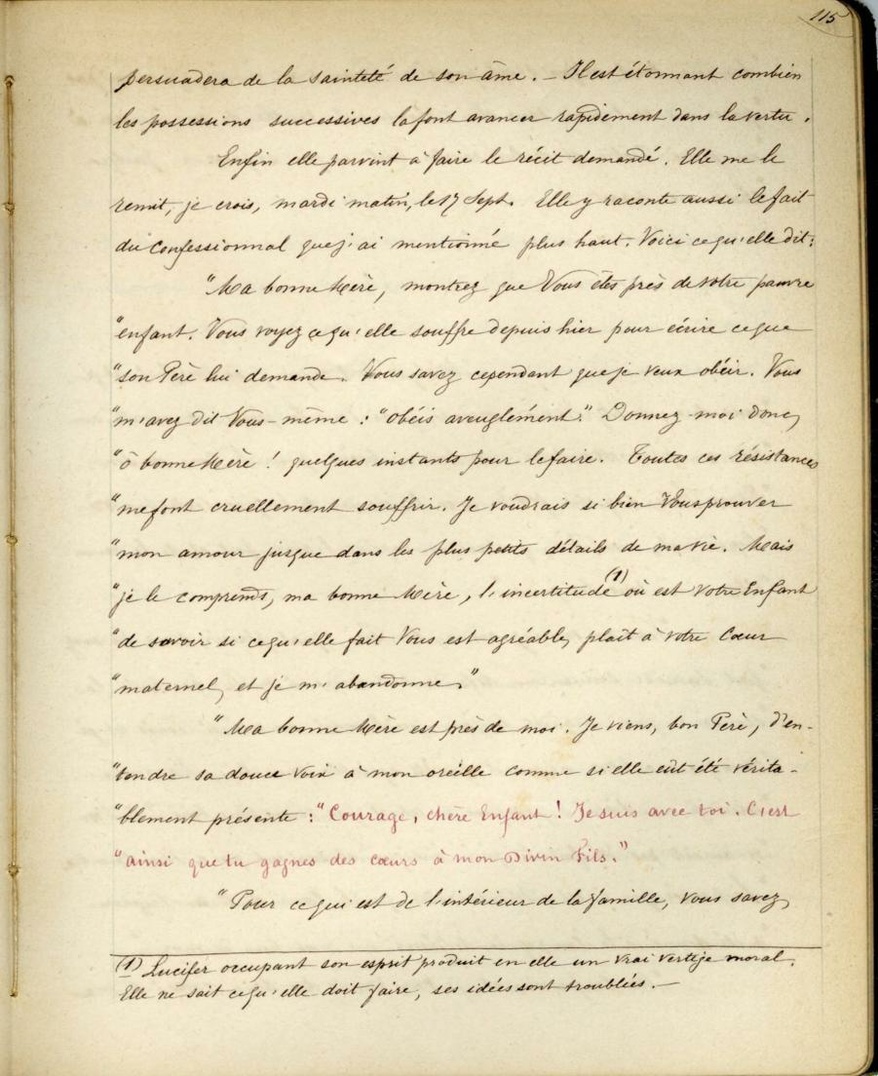 115
persuadera de la sainteté de son âme. – Il est étonnant combien
les possessions successives la font avancer rapidement dans la vertu.
Enfin elle parvint à faire le récit demandé. Elle me le
remit, je crois, mardi matin, le 17 Sept. Elle y raconte aussi le fait
du confessionnal que j'ai mentionné plus haut. Voici ce qu'elle dit:
"Ma bonne Mère, montrez que Vous êtes près de votre pauvre
"enfant. Vous voyez ce qu'elle souffre depuis hier pour écrire ce que
"son Père lui demande. Vous savez cependant que je veux obéir. Vous
"m'avez dit Vous-même : "obéis aveuglément." Donnez-moi donc,
"ô bonne Mère ! quelques instants pour le faire. Toutes ces résistances
"me font cruellement souffrir. Je voudrais si bien Vous prouver
"mon amour jusque dans les plus petits détails de ma vie. Mais
"je le comprends, ma bonne Mère, l'incertitude (1) où est Votre Enfant
"de savoir si ce qu'elle fait Vous est agréable, plaît à votre Cœur
"maternel, et je m'abandonne."
"Ma bonne Mère est près de moi. Je viens, bon Père, d'en-
"tendre sa douce voix à mon oreille comme si elle eût été vérita-
"blement présente : "Courage, chère Enfant ! Je suis avec toi. C'est
"ainsi que tu gagnes des cœurs à mon Divin Fils."
"Pour ce qui est de l'intérieur de la famille, vous savez,
(1) Lucifer occupant son esprit produit en elle un vrai vertige moral.
Elle ne sait ce qu'elle doit faire, ses idées sont troublées. –